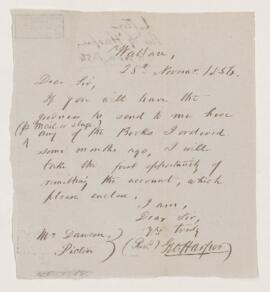 Wallace,
25th Novemr. 1856.
Dear Sir,
If you will have the
goodness to send to me here
(pr Mail or Stage)
any of the Books I ordered
some months ago, I will
take the first opportunity of
remitting the account, which
please enclose.
I am,
Dear Sir,
Yrs truly
Mr Dawson,
Pictou